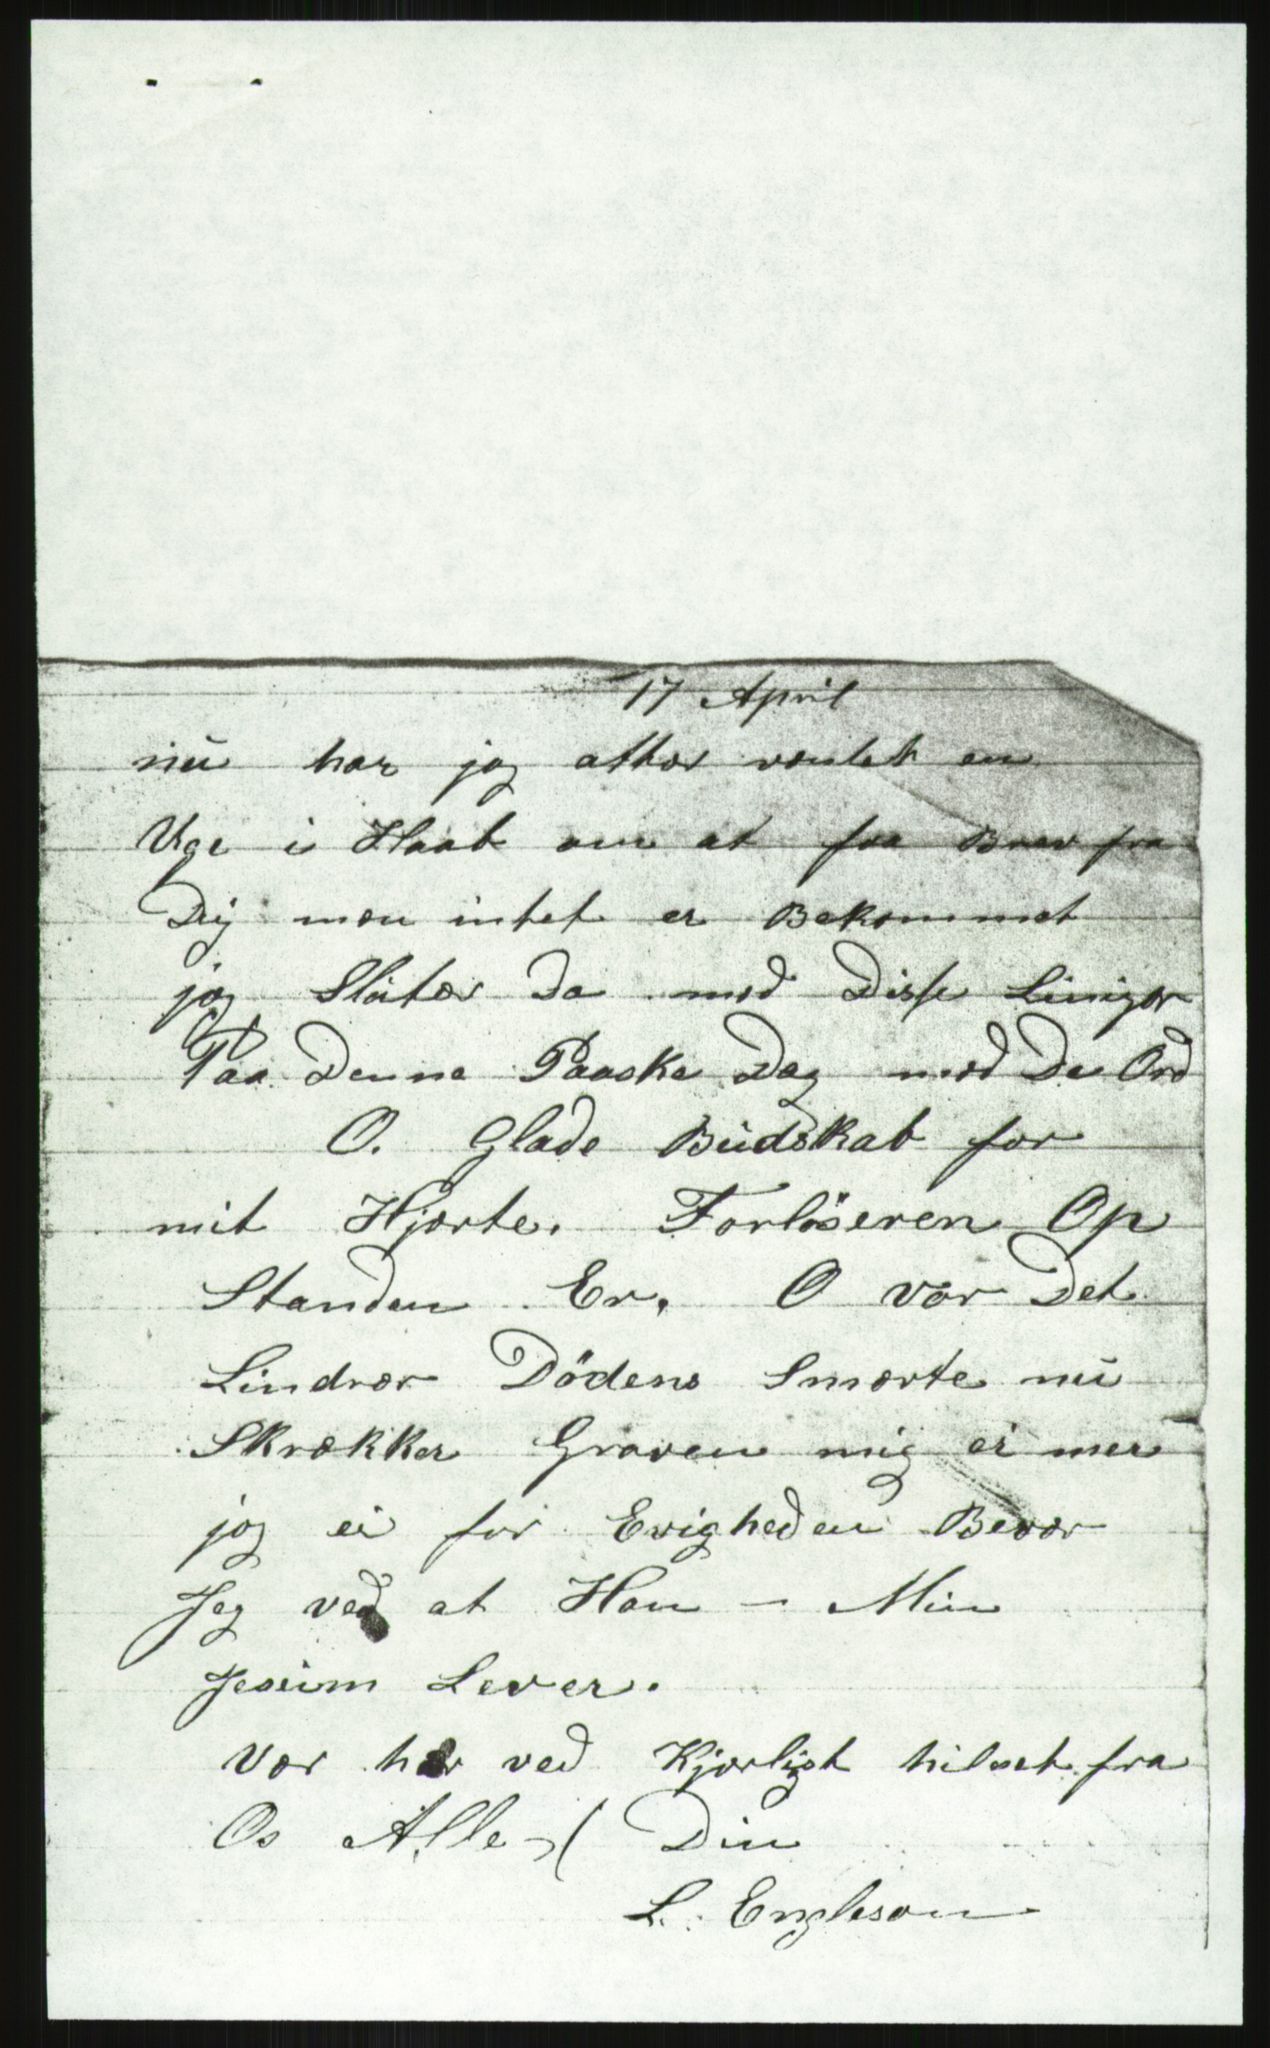 17 April
nu har jeg atter ventet en
Uge i Haab om at faa Brev fra
Dig men intet er Bekommet
jeg Sluter Da med Disse Liniger
Paa Denne Paaske Dag med De Ord
O. Glade Budskab for
mit Hjerte. Forlöseren Op
Standen Er. O vor Det
Lindrer Dödens Smerte nu
Skrækker Graven mig ei mer
jeg ei for Evigheden Bever
Jeg ved at Han - Min
Jesum Lever.
Vær her ved Kjærligt hilset fra
Os Alle Din
L. Engleson